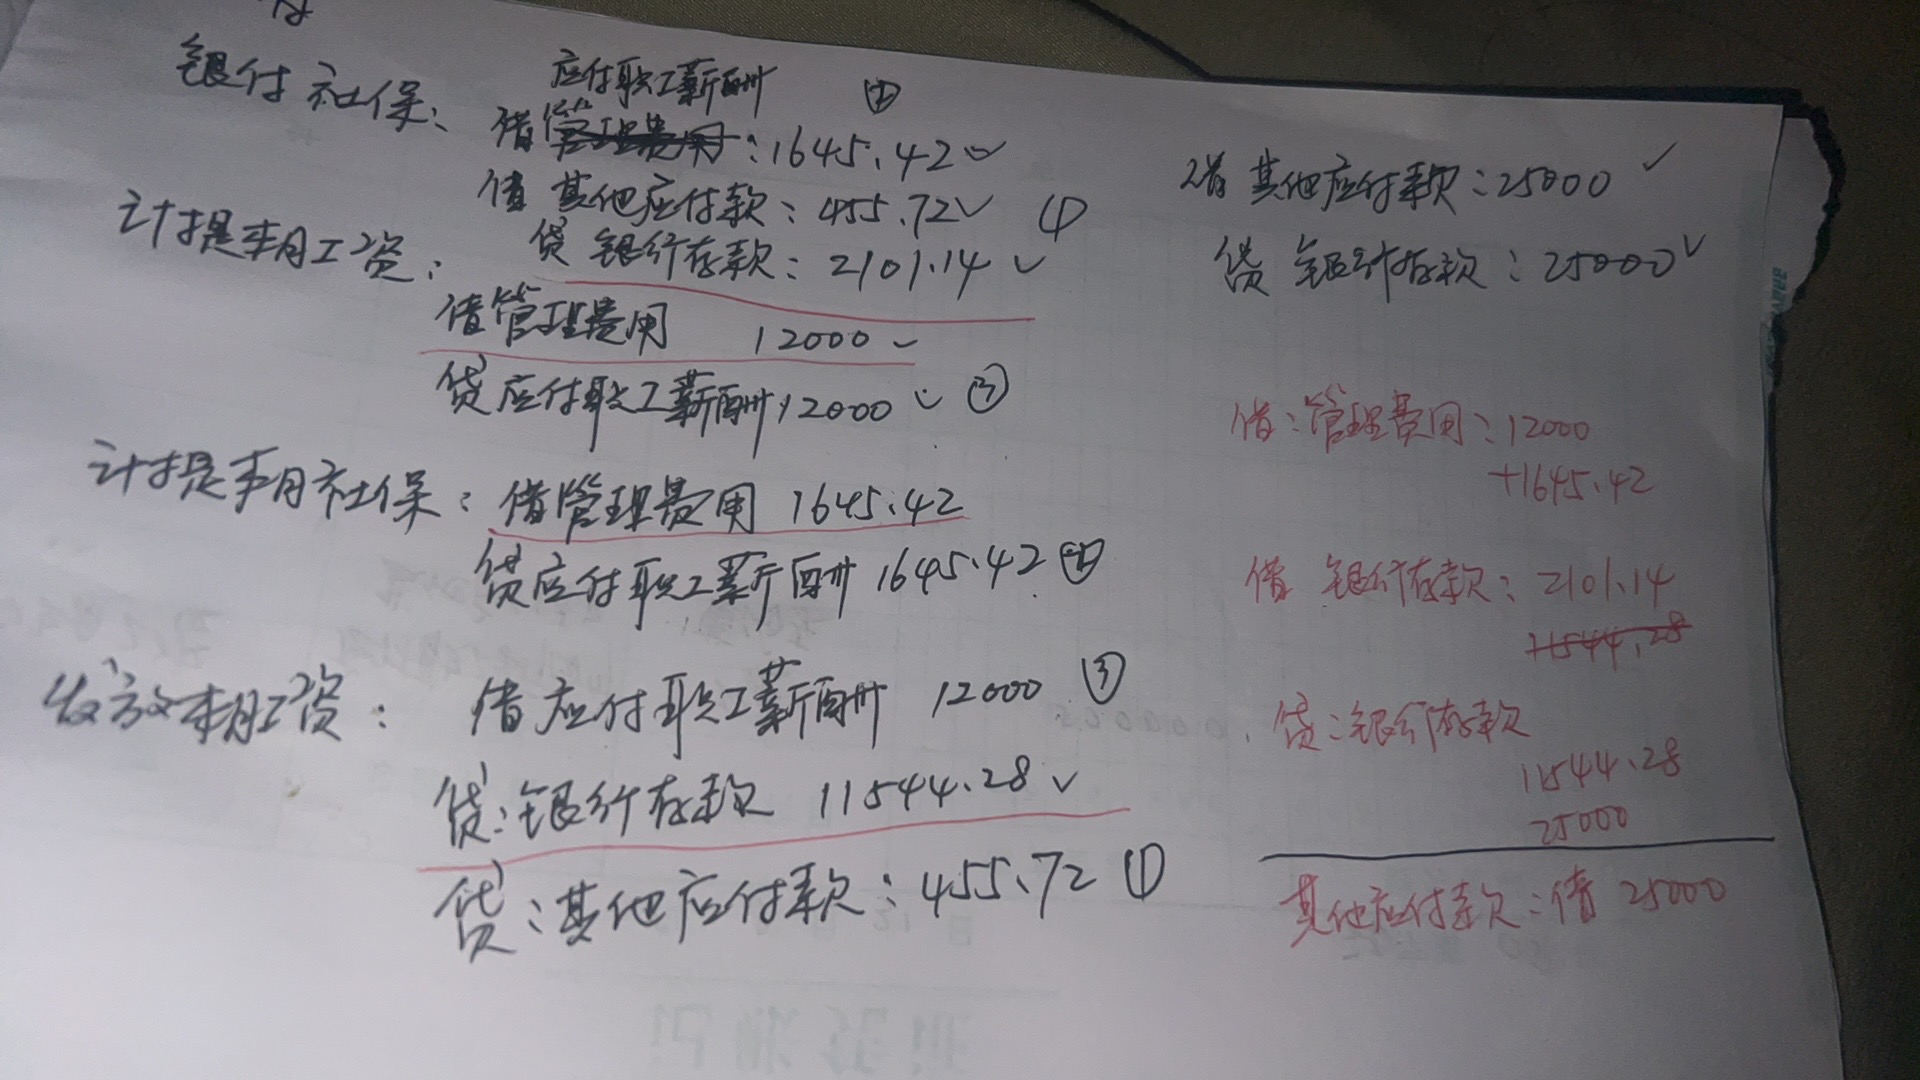 银付社保：
应付职工薪酬 ②
借管理费用：1645.42
借 其他应付款：455.72 ①
贷 银行存款：2101.14
计提本月工资：
借管理费用 12000
贷应付职工薪酬 12000 ③
计提本月社保：借管理费用 1645.42
贷应付职工薪酬 1645.42 ②
发放本月工资：借应付职工薪酬 12000 ③
贷：银行存款 11544.28
贷：其他应付款：455.72 ①
借其他应付款：25000
贷 银行存款：25000
借：管理费用：12000
+1645.42
借 银行存款：2101.14
11544.28
贷：银行存款
11544.28
25000
其他应付款：借 25000